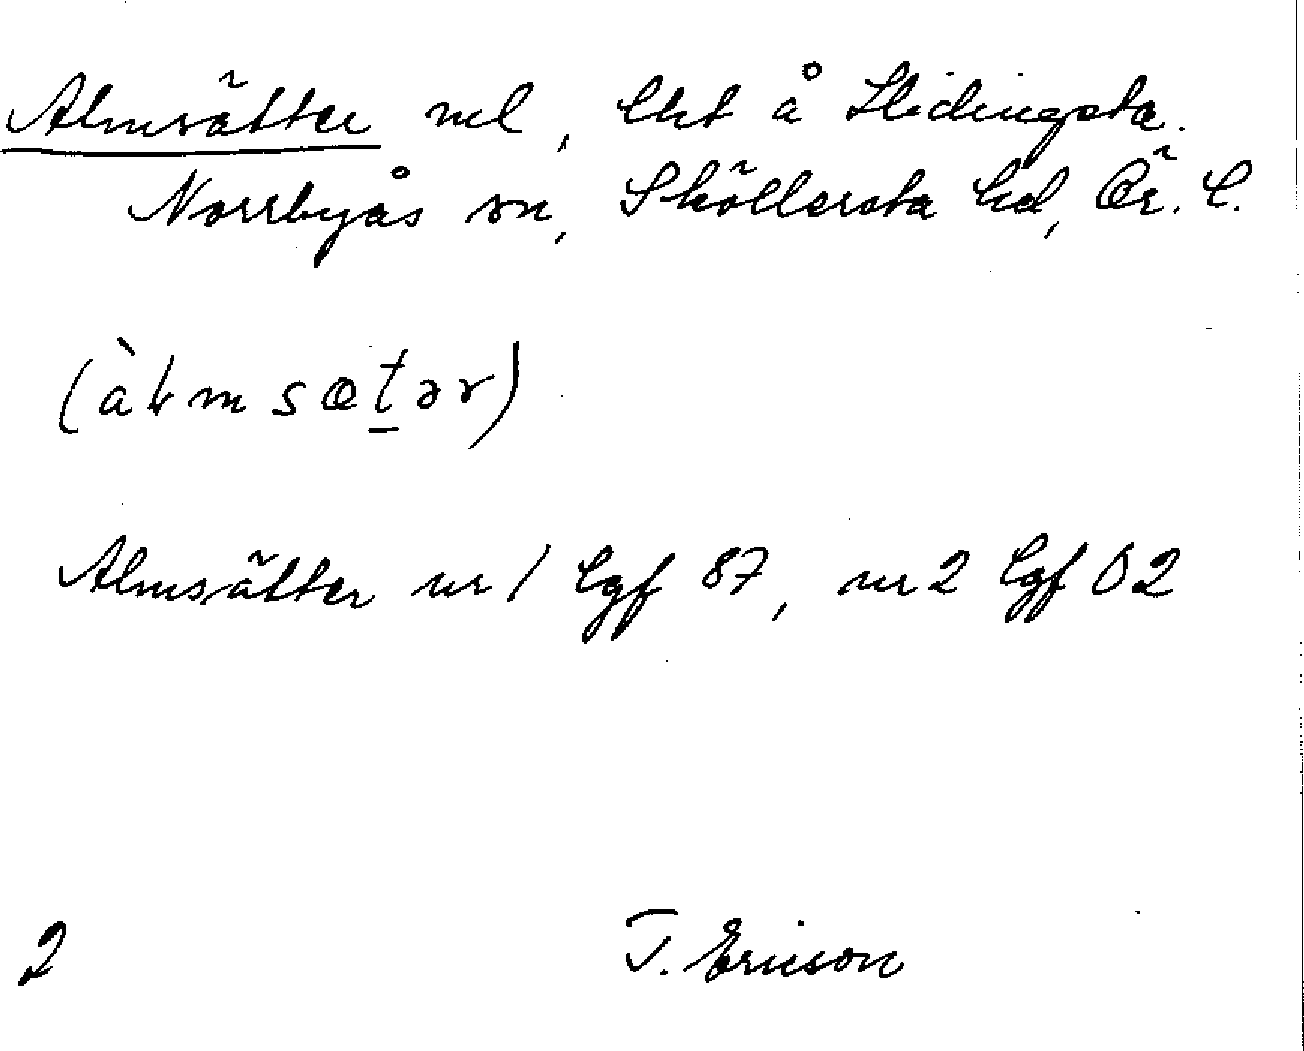 Almsätter nel, lht å Slidingsta.
Norrbyås sn, Sköllersta hd, Ör. l.
(àlmsætər)
Almsätter nr 1 lgf 87, nr 2 lgf 02
2 T. Ericson